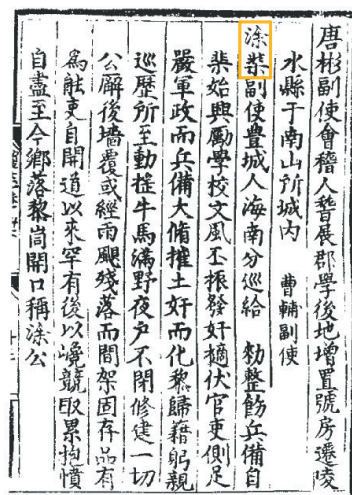 唐彬副使會稽人嘗展郡學後地增置號房遷陵
水縣于南山所城內　曹輔副使
涂棐副使豊城人海南分巡給　勑整飭兵備自
棐始興勵學校文風丕振發奸擿伏官吏側足
嚴軍政而兵備大脩摧土奸而化黎歸藉躬親
巡歷所至動捱牛馬滿野夜户不閉修建一切
公廨後墻覆或經雨颶殘落而間架固存品有
為能吏自開道以來罕有後以嶢競取累抱憤
自盡至今鄉落黎峝開口稱涂公